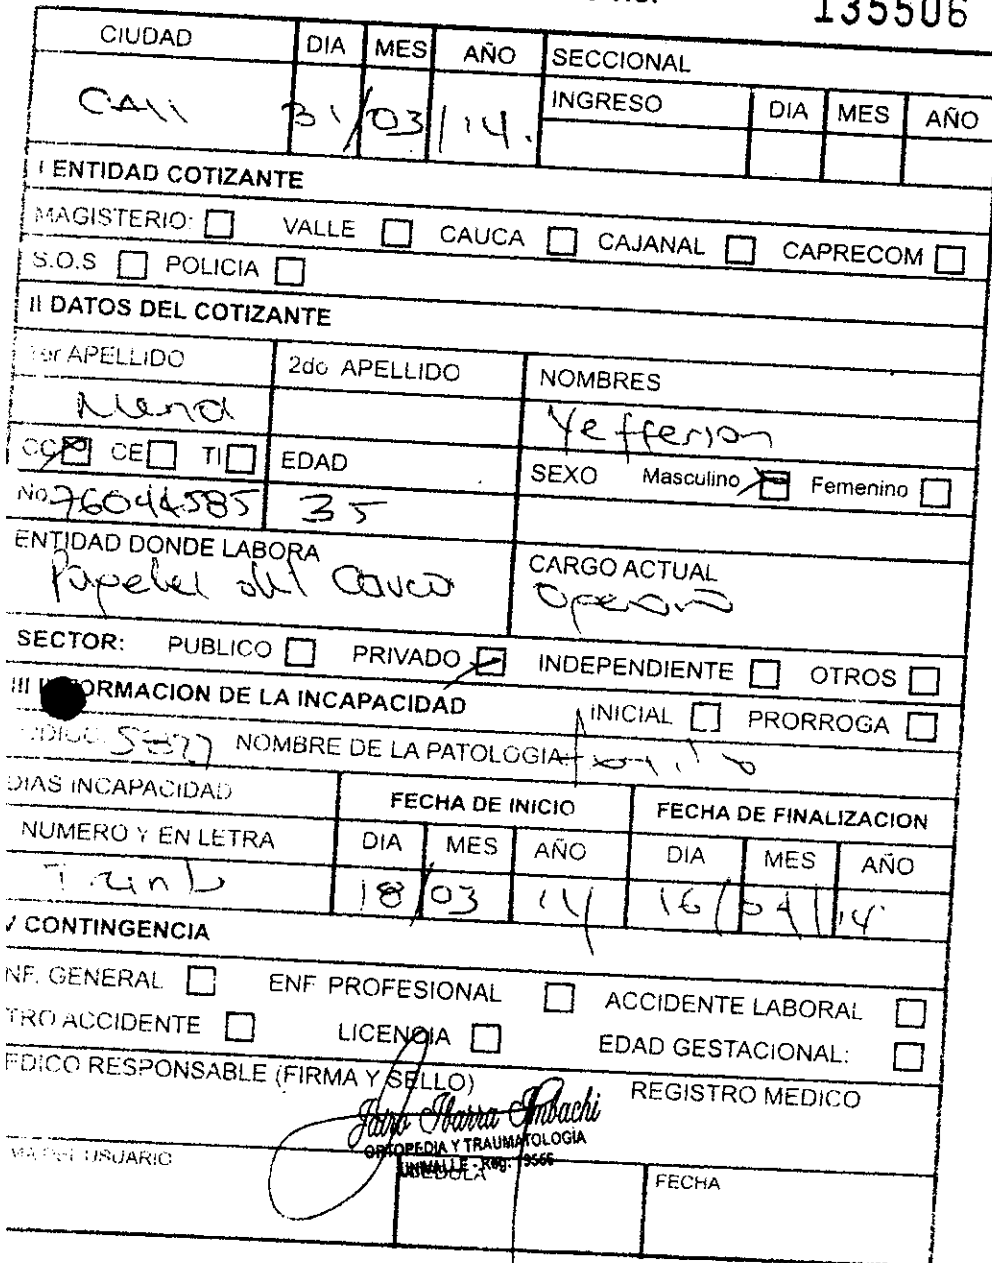 135506
CIUDAD DIA MES AÑO SECCIONAL
CALI 31/03/14. INGRESO DIA MES AÑO
I ENTIDAD COTIZANTE
MAGISTERIO: VALLE CAUCA CAJANAL CAPRECOM
S.O.S POLICIA
II DATOS DEL COTIZANTE
1er APELLIDO 2do APELLIDO NOMBRES
Yefferson
CC CE TI EDAD SEXO Masculino Femenino
No. 76044585 35
ENTIDAD DONDE LABORA CARGO ACTUAL
Papeles del Cauca Operario
SECTOR: PUBLICO PRIVADO INDEPENDIENTE OTROS
III INFORMACION DE LA INCAPACIDAD INICIAL PRORROGA
CODIGO NOMBRE DE LA PATOLOGIA
DIAS INCAPACIDAD FECHA DE INICIO FECHA DE FINALIZACION
NUMERO Y EN LETRA DIA MES AÑO DIA MES AÑO
18/03 14 16/04/14
V CONTINGENCIA
ENF. GENERAL ENF PROFESIONAL ACCIDENTE LABORAL
TRO ACCIDENTE LICENCIA EDAD GESTACIONAL:
EDICO RESPONSABLE (FIRMA Y SELLO) REGISTRO MEDICO
Jairo Ibarra Imbachi
ORTOPEDIA Y TRAUMATOLOGIA
UNIVALLE - Reg:
MA DEL USUARIO CEDULA FECHA